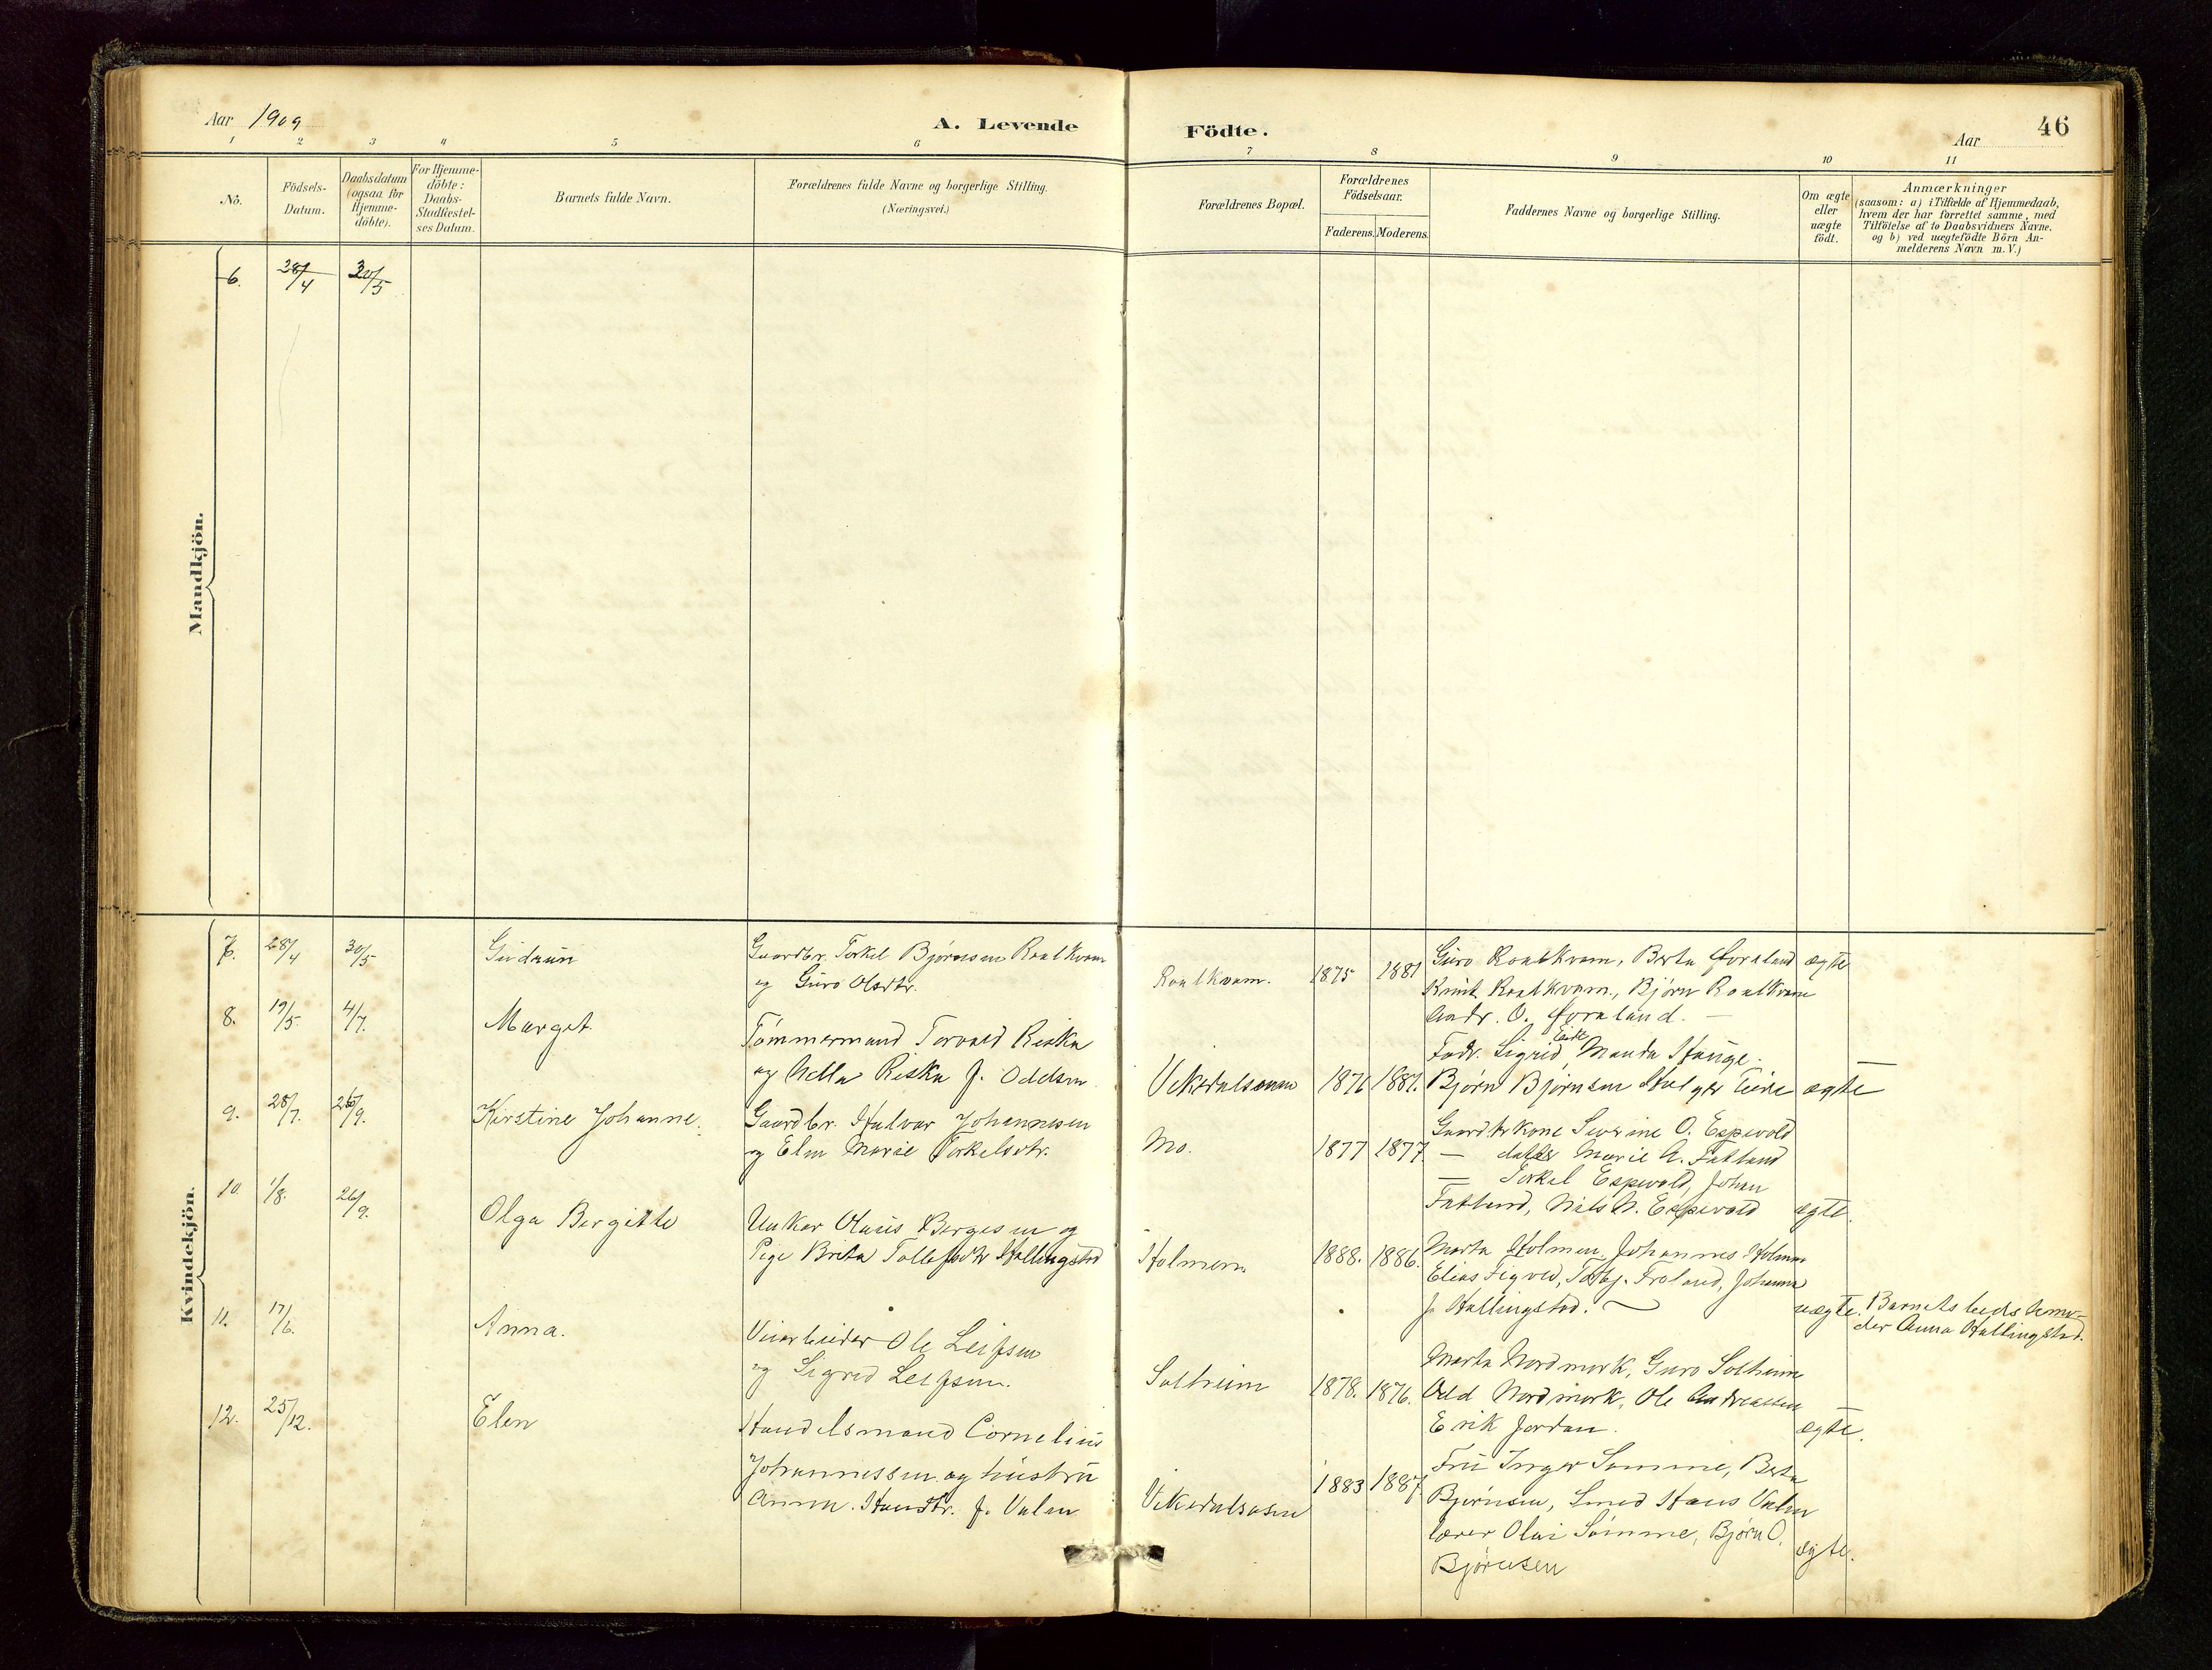 Aar 1909
A. Levende
Födte.
Aar
46
1 2 3 4 5 6 7 8 9 10 11
No.
Födsels-
Datum.
Daabsdatum
(ogsaa for
Hjemme-
döbte).
For Hjemme-
döbte:
Daabs-
Stadfæstel-
ses Datum.
Barnets fulde Navn.
Forældrenes fulde Navne og borgerlige Stilling.
(Næringsvei.)
Forældrenes Bopæl.
Forældrenes
Födselsaar.
Faderens. Moderens.
Faddernes Navne og borgerlige Stilling.
Om ægte
eller
uægte
födt.
Anmærkninger
(saasom: a) i Tilfælde af Hjemmedaab,
hvem der har forrettet samme, med
Tilföielse af to Daabsvidners Navne,
og b) ved uægtefödte Börn An-
melderens Navn m. V.)
Mandkjön.
6. 28/4 30/5
Kvindekjön.
7. 28/4 30/5
Gudrun
Gaardbr. Torkel Bjørnsen Raalkvam
og Guro Olsdtr.
Raalkvam. 1875 1881
Guro Raalkvam, Berta Førland
Knut Raalkvam, Bjørn Raalkvam
Andr. O. Førland. —
ægte
8. 19/5 4/7.
Margit
Tømmermand Torvald Riska
og Nella Riska f. Oddsen
Vikedalsøen 1876 1887.
Fadr. Sigrid Eide, Manda Hauge.
Bjørn Bjørnsen Holger Eide
ægte
9. 28/7. 26/9.
Kirstine Johanne.
Gaardbr. Halvar Johannesen
og Elen Marie Torkelsdtr.
Mo. 1877 1877
Gaardbrkone Severine O. Espevold
— datter Marie A. Fatland
— Torkel Espevold, Johan
Fatland, Nils N. Espevold
ægte.
10. 1/8. 26/9.
Olga Bergitte
Unkar Olaus Børgesen og
Pige Brita Tollefsdtr Hallingstad
Holmen 1888. 1886.
Marta Holmen, Johannes Holmen
Elias Tigved, Torbj. Frøland, Johanna
J. Hallingstad.
uægte.
Barnets bedstemo-
der Anna Hallingstad.
11. 17/6.
Anna.
Veiarbeider Ole Leifsen
og Sigrid Leifsen.
Solheim 1878. 1876.
Marta Nordmork, Guro Solheim
Odd Nordmork, Ole Andreassen
Erik Jordan.
ægte.
12. 25/12.
Elen
Handelsmand Cornelius
Johannessen og hustru
Anna Hansdtr. f. Valen
Vikedalsosen 1883 1887
Fru Inger Sømme, Berta
Bjørnsen, Smed Hans Valen
lærer Olai Sømme, Bjørn O.
Bjørnsen
ægte.